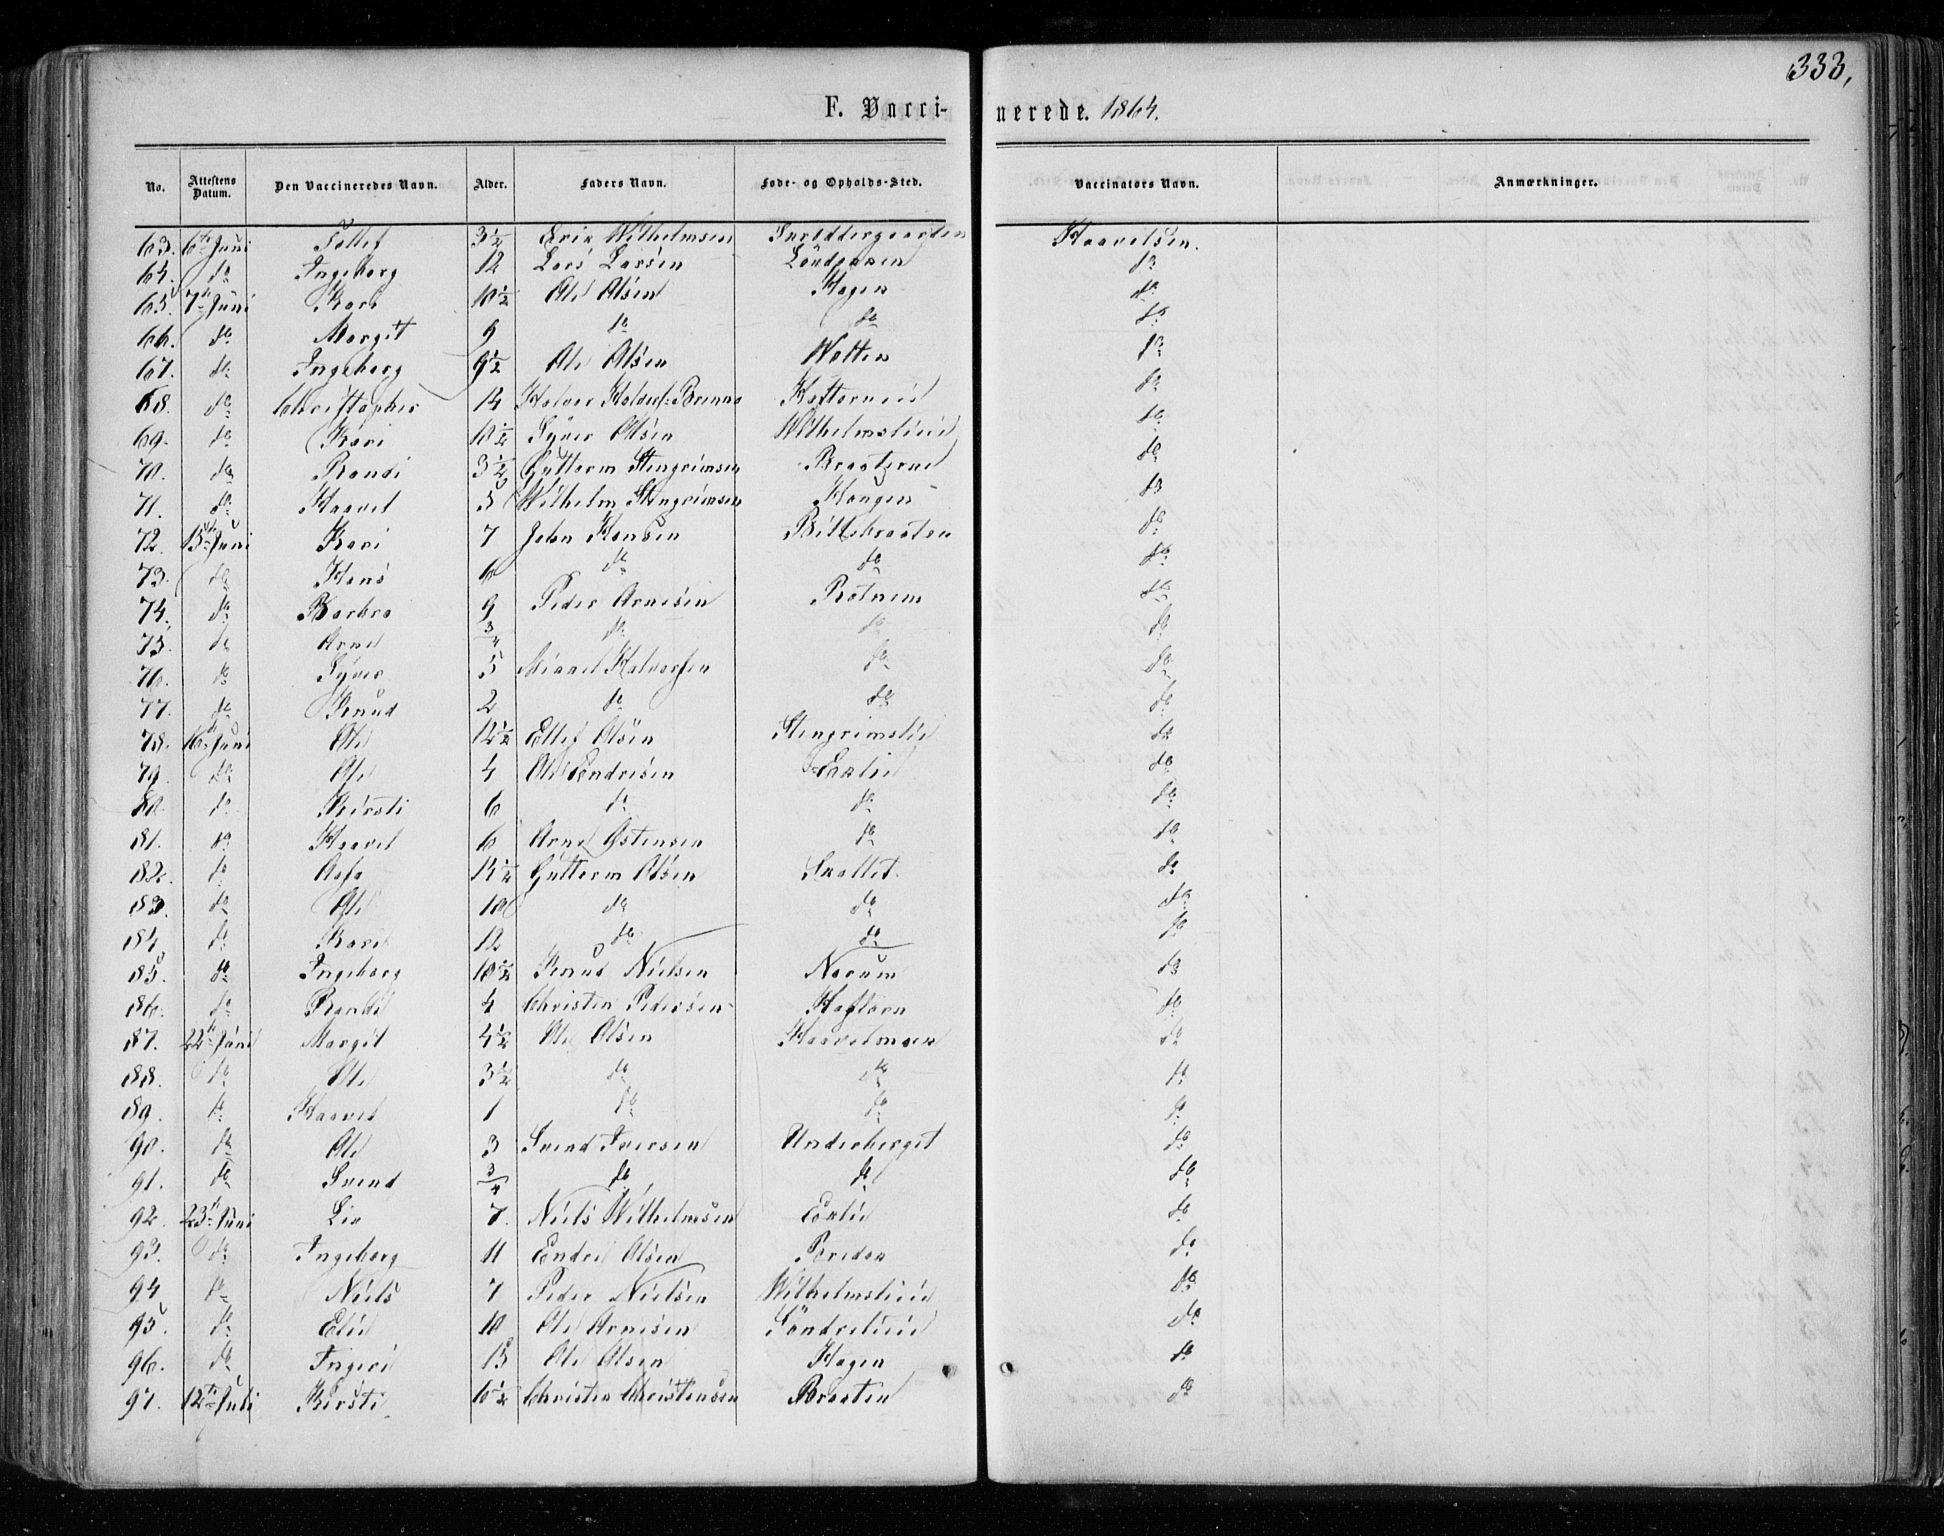 333,
F. Vacci- nerede. 1864.
No. Attestens Datum. Den Vaccineredes Navn. Alder. Faders Navn. Føde- og Opholds-Sted. Vaccinators Navn. Anmærkninger.
63. 6te Juni Tollef 3½ Erik Wilhelmsen Haavelsen.
64. do Ingeborg 12 Lars Larsen do
65. 7de Juni Kari 10½ Ole Olsen Hagen do
66. do Margit 9 do do do
67. do Ingeborg 9½ Ole Olsen Wollen do
68. do Christopher 14 Halvor do
69. do Kari 10½ Syver Olsen Wilhelmslien do
70. do Randi 3½ Guttorm Stengrimsen Braaterne do
71. do Haavel 5 Wilhelm Stengrimsen Haugen do
72. 15de Juni Kari 7 John Hansen Billebraaten do
73. do Hans 6 do do do
74. do Barbro 9 Peder Arnesen Rotnem do
75. do Arne ¾ do do do
76. do Syver 5 Mikkel Halvorsen do do
77. do Knud 2 do do do
78. 16de Juni Ole 12½ Ellef Olsen Stengrimslie do
79. do Ole 4 Ole Endresen Eeklie do
80. do Kirsti 6 do do do
81. do Haavel 6 Arne Østensen do do
82. do Aase Guttorm Olsen do
83. do Ole 10 do do do
84. do Kari 12 do do do
85. do Ingeborg 10½ Knud Nielsen Norum do
86. do Randi 4 Christen Pedersen Haftorn do
87. 22de Juni Margit 4½ Ole Olsen Haavelmoen do
88. do Ole 3½ do do do
89. do Haavel 1 do do do
90. do Ole 3 Svend Iversen Underberget do
91. do Svend ¾ do do do
92. 23de Juni Liv 7. Niels Wilhelmsen Eeklie do
93. do Ingeborg 11 Endre Olsen do
94 do Niels 7 Peder Nielsen Wilhelmslien do
95. do Elie 10 Ole Arnesen Söndrelien do
96. do Ingeri 13 Ole Olsen Hagen do
97. 12te Juli Kirsti 6½ Christen Christensen Braaten do